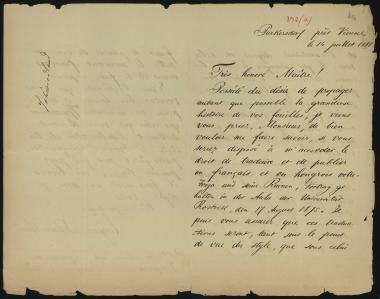 Purkersdorf près Vienne
le 14 juillet
Très honoré Maître!
Possédé du désir de propager
autant que possible la grandiose
histoire de vos fouilles, je viens
vous prier, Monsieur, de bien
vouloir me faire savoir, si vous
seriez disposé à m'accorder le
droit de traduire et de publier
en français et en hongrois votre
Troja und seine Ruinen, Vortrag ge-
halten in der Aula der Universität
Rostock, den 17 August 1875. Je
puis vous assurer que ces traduc-
tions seront, tant sous le point
de vue du style, que sous celui